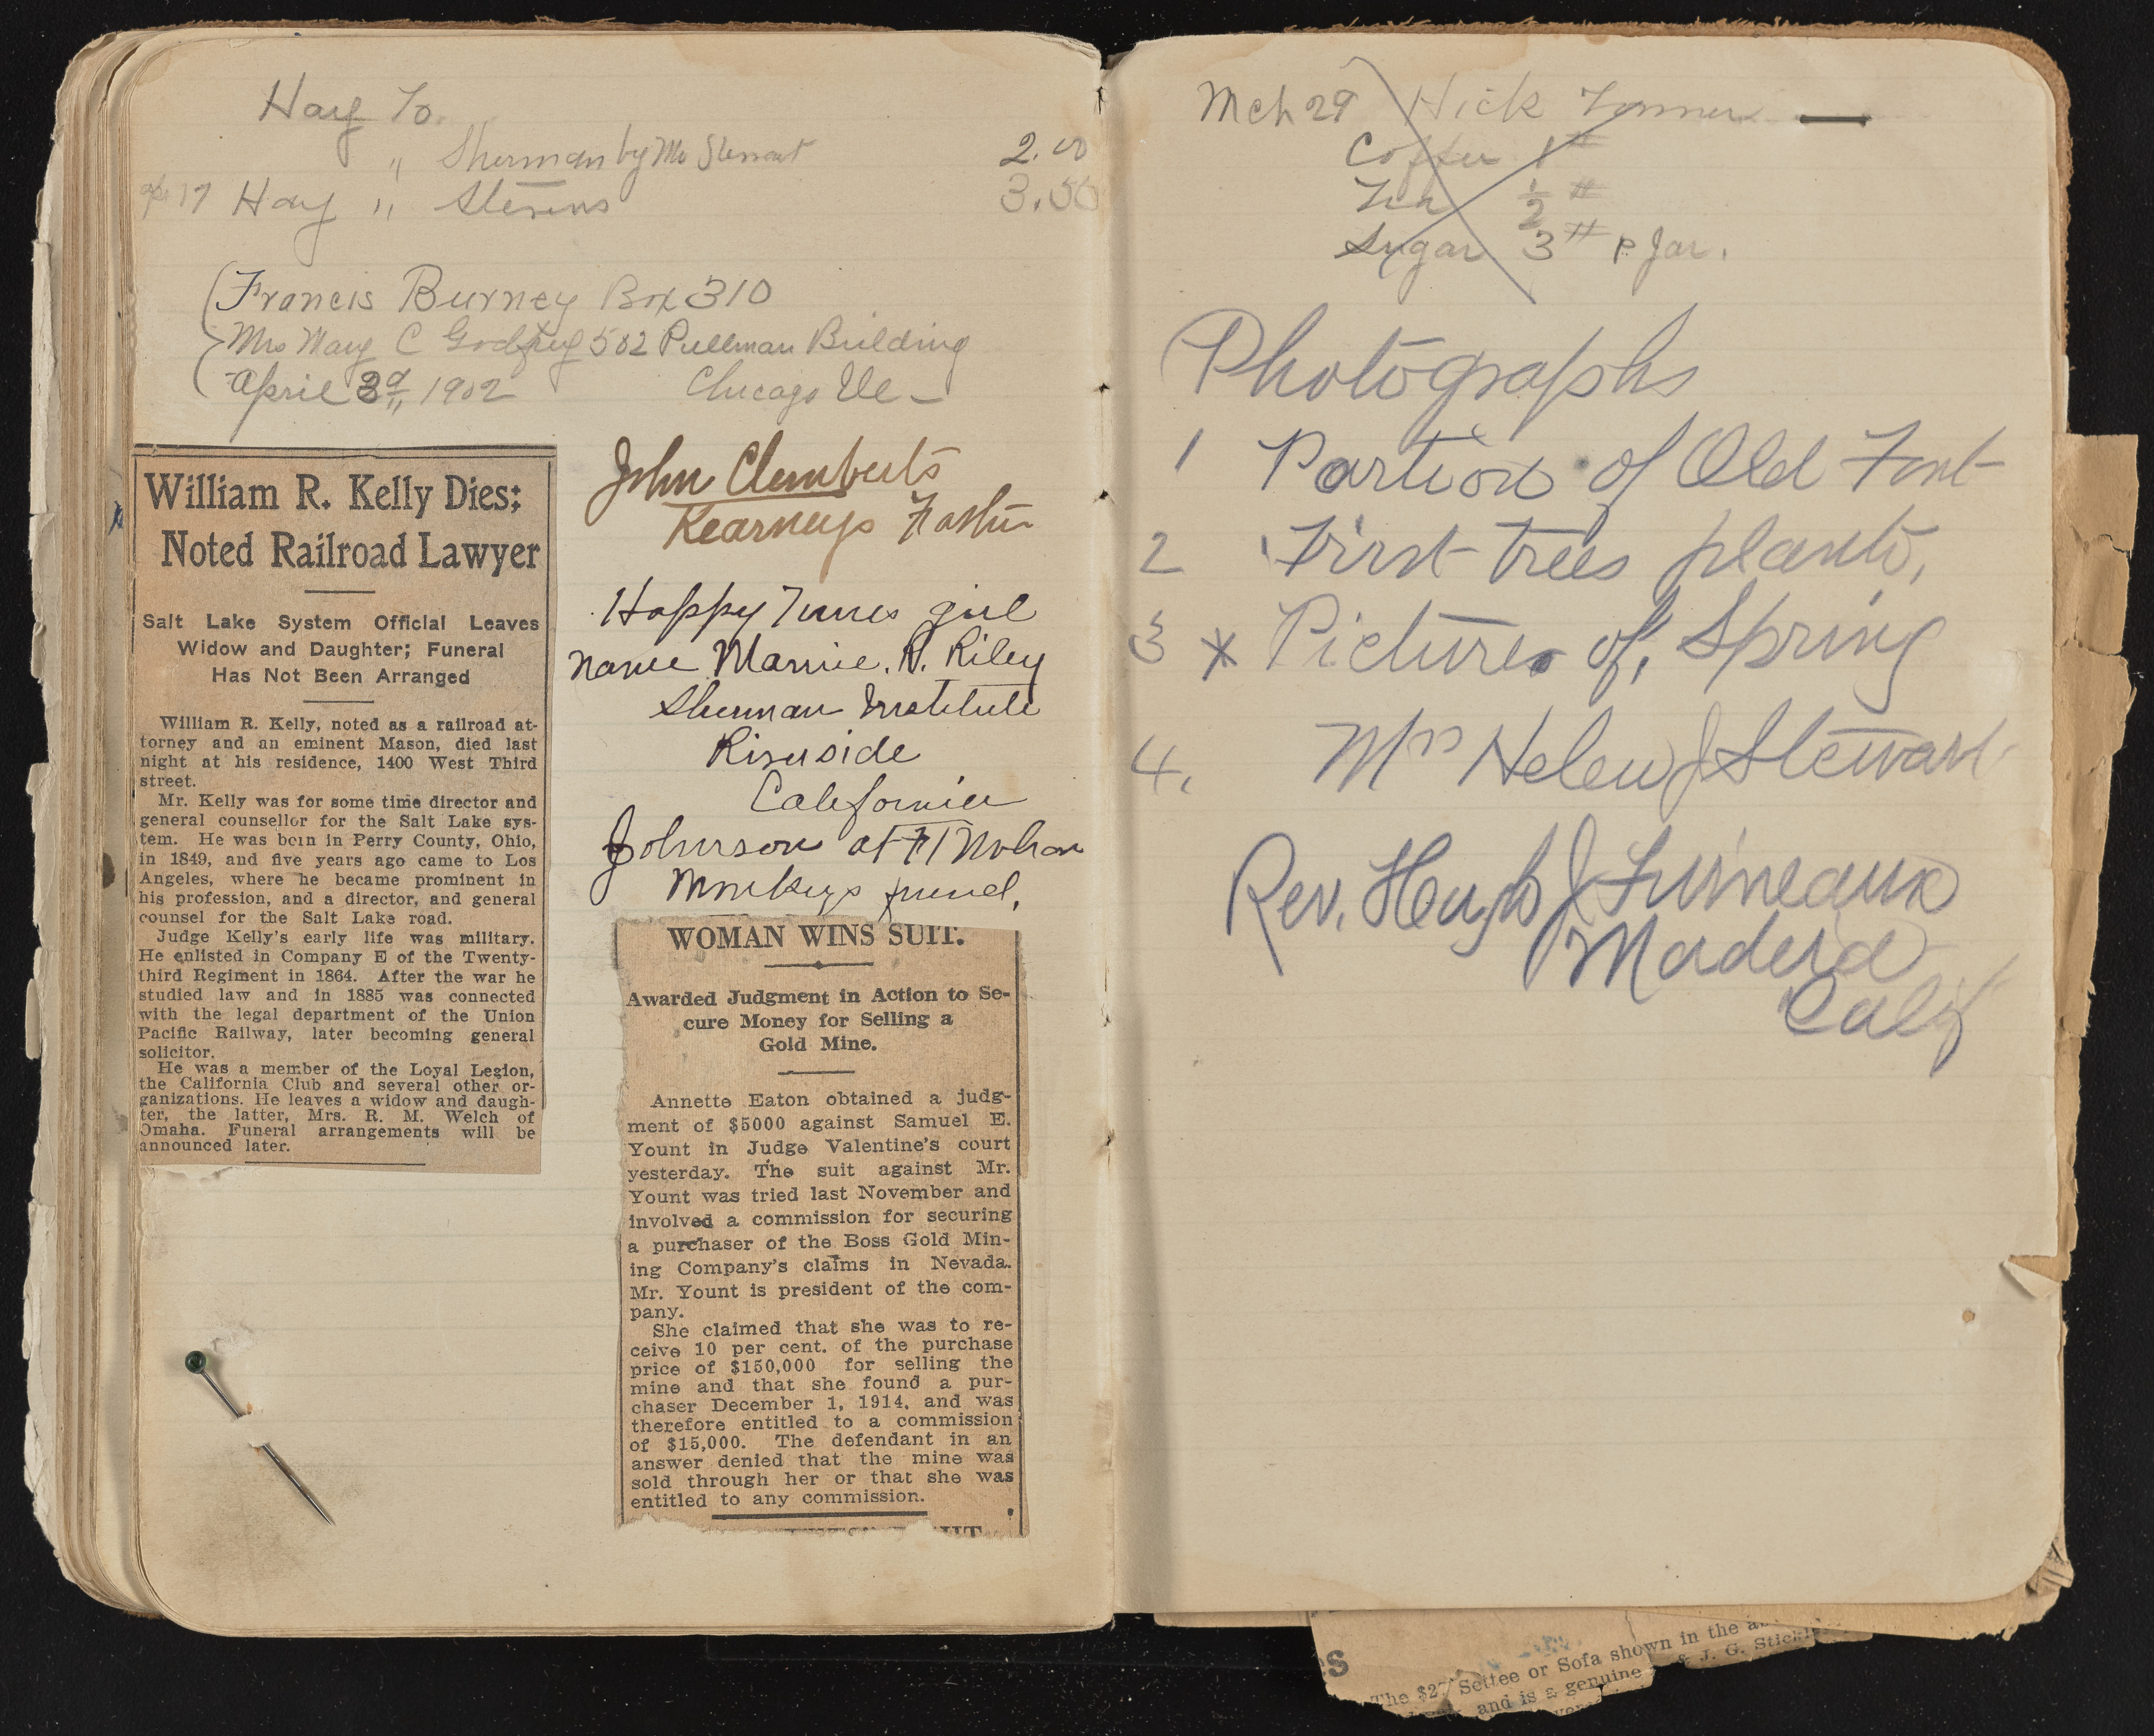 Hay To.
" Sherman by Mr Stewart 2.00
17 Hay " Stevens 3.50
Francis Burney Box 310
Mrs Mary C Godfrey 502 Pullman Building
April 1902 Chicago Ill
William R. Kelly Dies;
Noted Railroad Lawyer
Salt Lake System Official Leaves
Widow and Daughter; Funeral
Has Not Been Arranged
William R. Kelly, noted as a railroad at-
torney and an eminent Mason, died last
night at his residence, 1400 West Third
street.
Mr. Kelly was for some time director and
general counsellor for the Salt Lake sys-
tem. He was born in Perry County, Ohio,
in 1849, and five years ago came to Los
Angeles, where he became prominent in
his profession, and a director, and general
counsel for the Salt Lake road.
Judge Kelly's early life was military.
He enlisted in Company E of the Twenty-
third Regiment in 1864. After the war he
studied law and in 1885 was connected
with the legal department of the Union
Pacific Railway, later becoming general
solicitor.
He was a member of the Loyal Legion,
the California Club and several other or-
ganizations. He leaves a widow and daugh-
ter, the latter, Mrs. R. M. Welch of
Omaha. Funeral arrangements will be
announced later.
John
Kearneys
Happy Times girl
name Mamie. R. Riley
Sherman Institute
Riverside
California
Johnson at Ft Mohave
Monkeys friend.
WOMAN WINS SUIT.
Awarded Judgment in Action to Se-
cure Money for Selling a
Gold Mine.
Annette Eaton obtained a judg-
ment of $5000 against Samuel E.
Yount in Judge Valentine's court
yesterday. The suit against Mr.
Yount was tried last November and
involved a commission for securing
a purchaser of the Boss Gold Min-
ing Company's claims in Nevada.
Mr. Yount is president of the com-
pany.
She claimed that she was to re-
ceive 10 per cent. of the purchase
price of $150,000 for selling the
mine and that she found a pur-
chaser December 1, 1914, and was
therefore entitled to a commission
of $15,000. The defendant in an
answer denied that the mine was
sold through her or that she was
entitled to any commission.
Mch 29 Hick
Coffee 1 #
1/2 #
Sugar 3 # Jar.
Photographs
1 Portion of Old Fort
2 First trees plants,
3 * Pictures of, Spring
4. Mrs Helen J Stewart
Rev. Hugh J Furneaux
Madera
Calif
The $27 Settee or Sofa shown in the
and is a genuine & J. G. Stickl